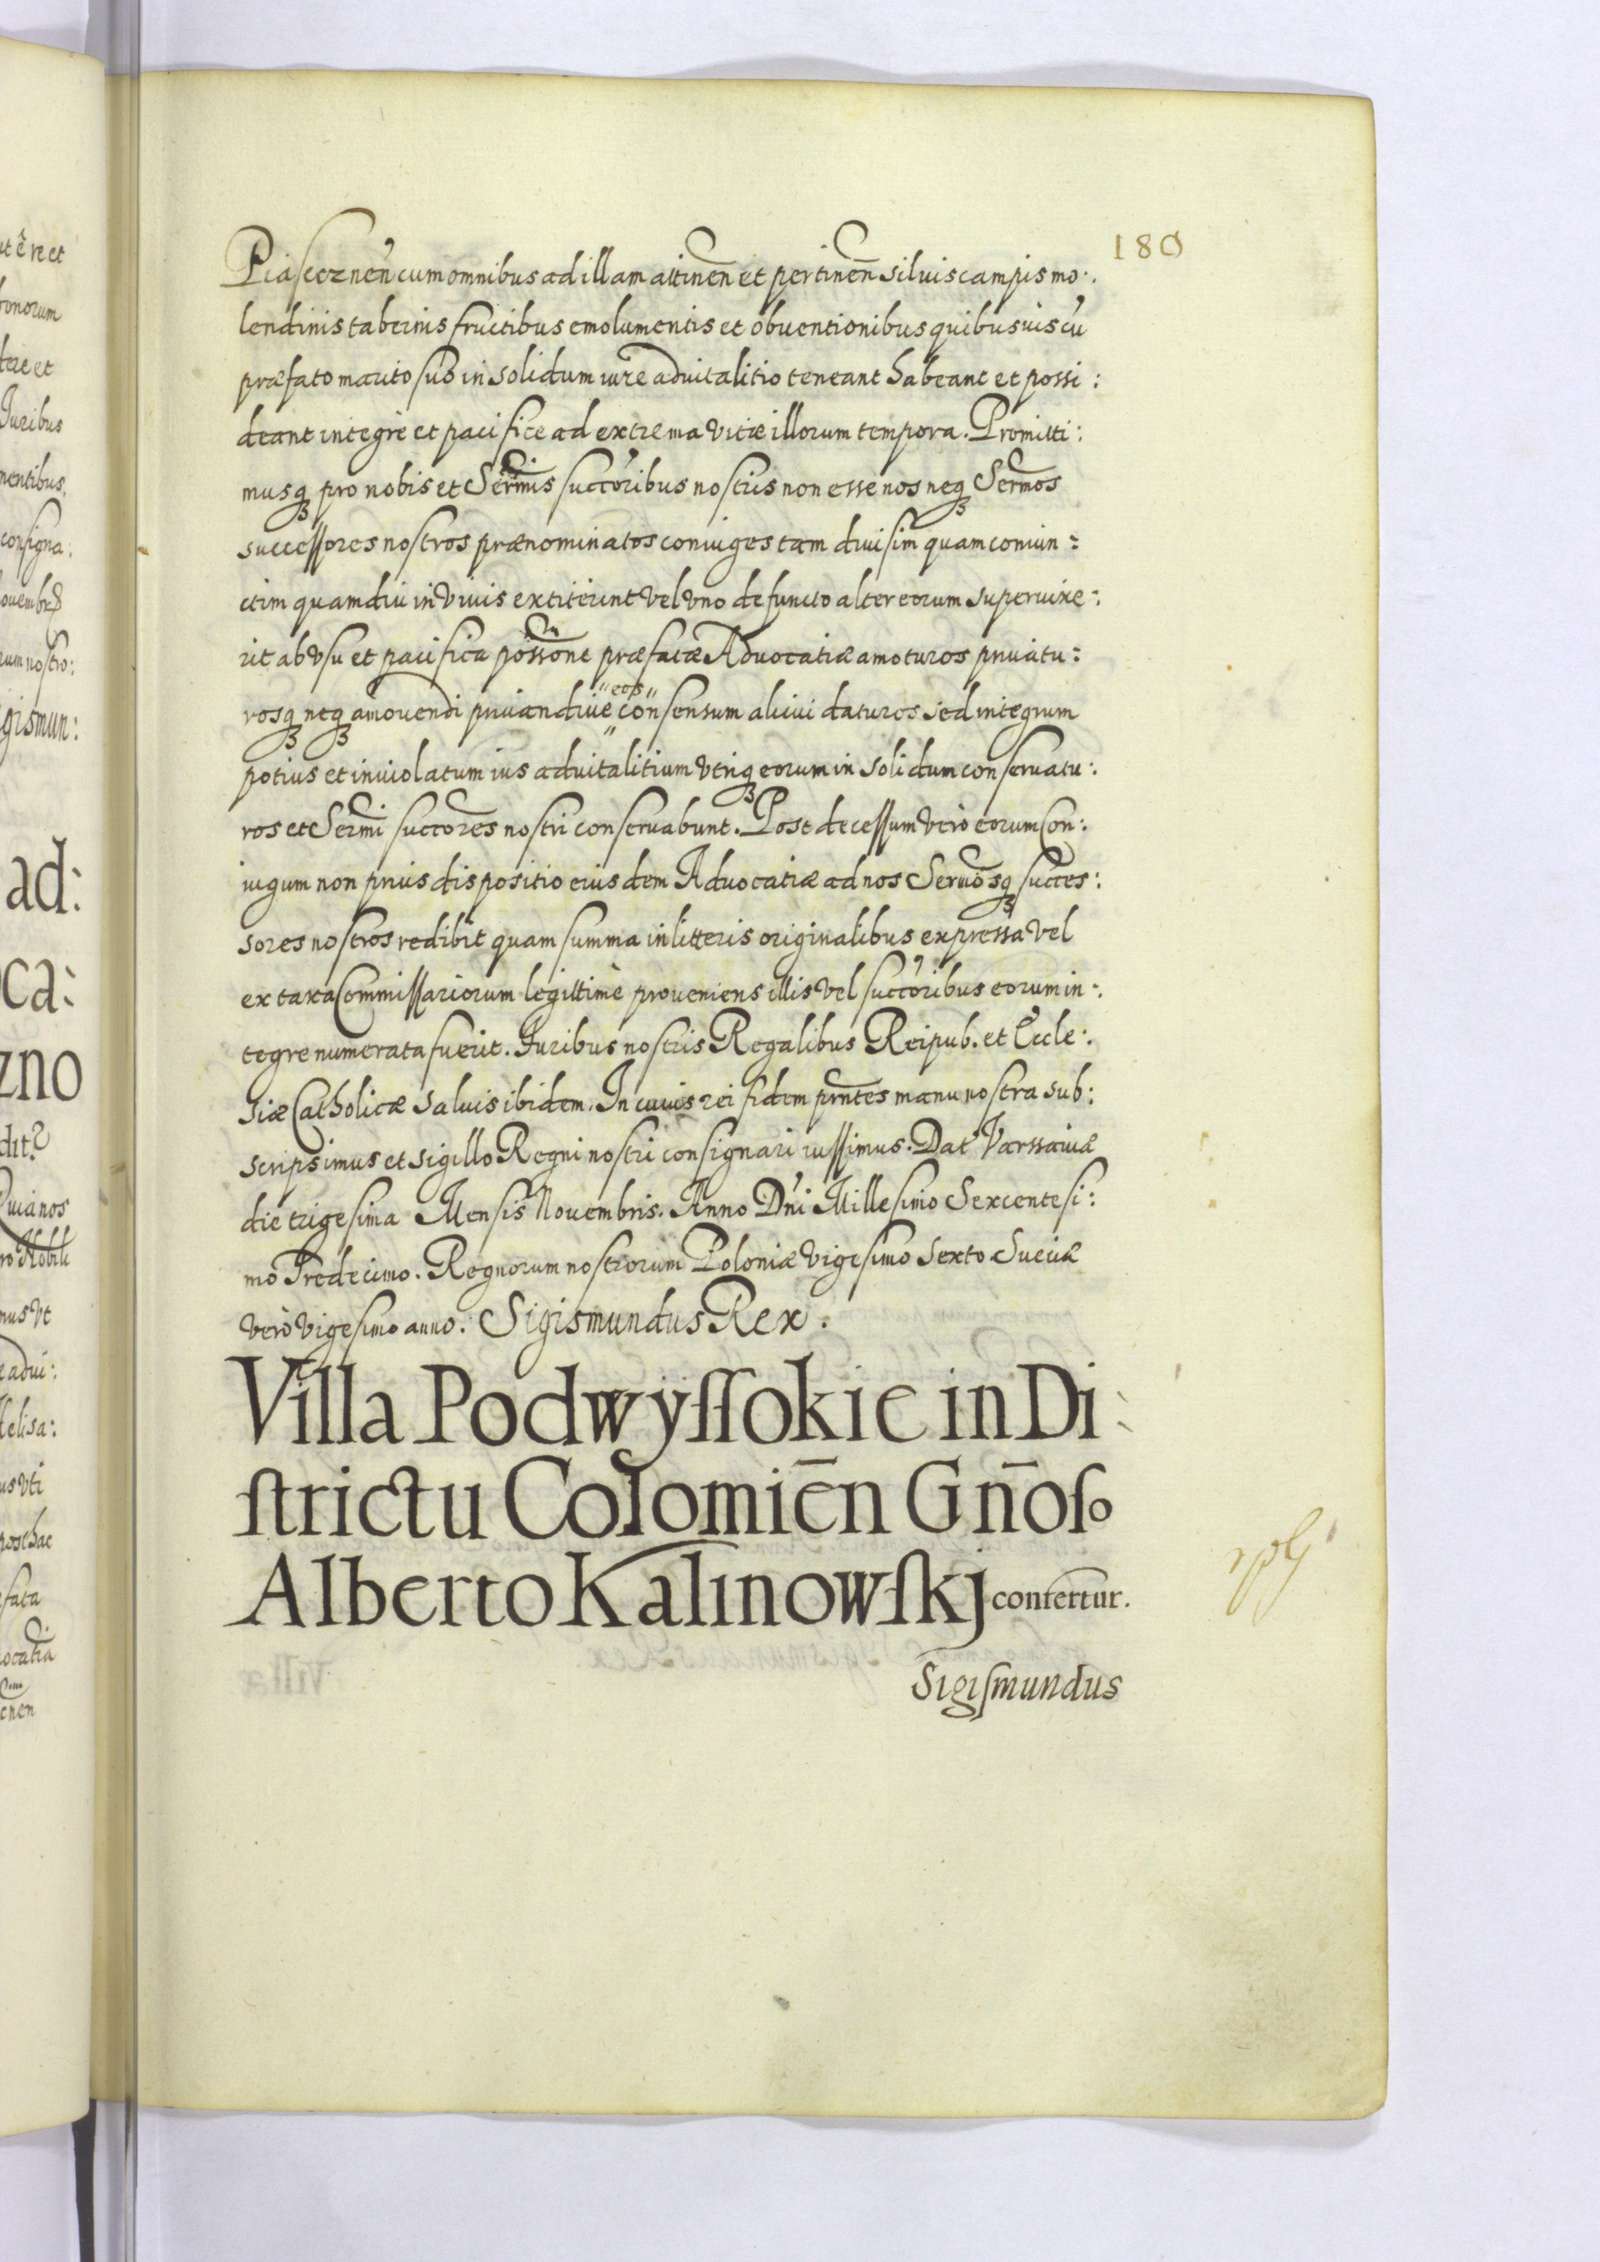 180
Piasecznen̄ cum omnibus ad illam attinen̄ et pertinen̄ siluis campis mo:
lendinis tabernis fructibus emolumentis et obuentionibus quibusuis cu̓
præfato marito suo in solidum iure aduitalitio teneant habeant et possi:
deant integrè et pacifice ad extrema vitæ illorum tempora. Promitti:
musq̨ pro nobis et Serm̄is succ̓oribus nostris non esse nos neq̨ Serm̄os
successores nostros prænominatos coniuges tam diuisim quam coniun:
ctim quamdiu in viuis extiterint vel vno defuncto alter eorum superuixe:
rit ab vsu et pacifica possōne præfatæ Aduocatiæ amoturos priuatu:
rosq̨ neq̨ amouendi priuandiue "eos" consensum alicui daturos sed integrum
potius et inuiolatum ius aduitalitium vtriq̨ eorum in solidum conseruatu:
ros et Serm̄i succōres nostri conseruabunt. Post decessum verò eorum Con:
iugum non prius dispositio eiusdem Aduocatiæ ad nos Serm̄osq̨ succes:
sores nostros redibit quam summa in litteris originalibus expressa vel
ex taxa Commissariorum legittimè proueniens illis vel succ̓oribus eorum in:
tegre numerata fuerit. Iuribus nostris Regalibus Reipub. et Eccle:
siæ Catholicæ saluis ibidem. In cuius rei fidem prn̄tes manu nostra sub:
scripsimus et sigillo Regni nostri consignari iussimus. Dat̓ Varssauiæ
die trigesima Mensis Nouembris. Anno Dn̓i Millesimo Sexcentesi:
mo Tredecimo. Regnorum nostrorum Poloniæ vigesimo sexto Sueciæ
verò vigesimo anno. Sigismundus Rex.
Villa Podwyſſokie in Di:
ſtrictu Colomien̄ Gn̄oſo
Alberto Kalinowſkj confertur.
Sigiſmundus